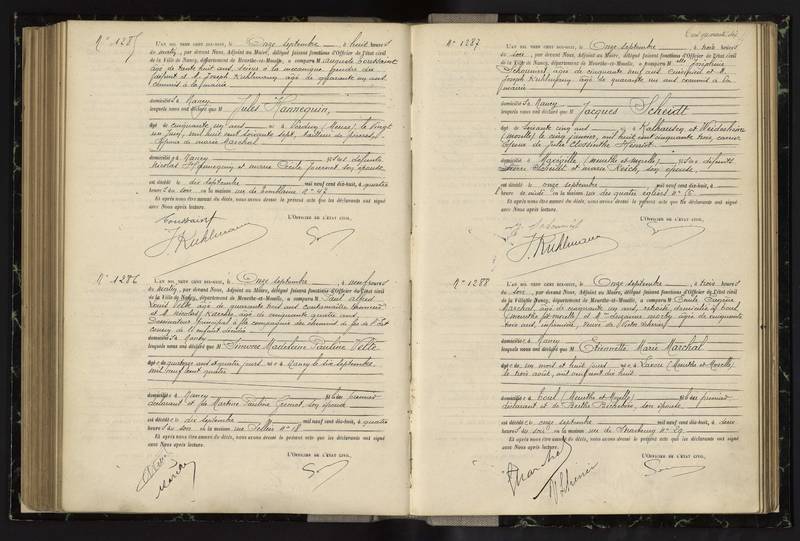 N° 1285
L'AN MIL NEUF CENT DIX-HUIT, le Onze septembre, à huit heures
du matin, par devant Nous, Adjoint au Maire, délégué faisant fonctions d'Officier de l'état civil
de la Ville de Nancy, département de Meurthe-et-Moselle, a comparu M Auguste Toussaint
âgé de trente huit ans, gendre du
défunt et M. Joseph Kuhlmann âgé de quarante un ans
commis à la mairie
domiciliés à Nancy
lesquels nous ont déclaré que M Jules Hannequin,
âgé de cinquante un ans né à Verdun (Meuse) le vingt
un Juin, mil huit cent soixante sept, tailleur de pierres,
époux de Marie Marchal
domicilié à Nancy fils des défunts
Nicolas Hannequin et Marie Cécile son épouse
est décédé le dix septembre mil neuf cent dix-huit, à quatre
heures du soir en la maison rue de Tomblaine n° 47
Et après nous être assuré du décès, nous avons dressé le présent acte que les déclarants ont signé
avec Nous après lecture.
L'OFFICIER DE L'ÉTAT CIVIL,
Toussaint
J. Kuhlmann
N° 1286
L'AN MIL NEUF CENT DIX-HUIT, le Onze septembre, à neuf heures
du matin, par devant Nous, Adjoint au Maire, délégué faisant fonctions d'Officier de l'état civil
de la Ville de Nancy, département de Meurthe-et-Moselle, a comparu M Paul Alfred
âgé de quarante huit ans
et M. Nicolas âgé de cinquante quatre ans,
Dessinateur principal à la compagnie des chemins de fer de l'Est
domiciliés à Nancy
lesquels nous ont déclaré que M Simone Madeleine Pauline Velle
âgée de quatorze ans et quatre jours née à Nancy le dix septembre
mil neuf cent quatre
domiciliée à Nancy fille du premier
déclarant et de Martine Pauline son épouse
est décédée le dix septembre mil neuf cent dix-huit, à quatre
heures du soir en la maison rue Sellier n° 18
Et après nous être assuré du décès, nous avons dressé le présent acte que les déclarants ont signé
avec Nous après lecture.
L'OFFICIER DE L'ÉTAT CIVIL,
N° 1287
L'AN MIL NEUF CENT DIX-HUIT, le Onze septembre, à trois heures
du soir, par devant Nous, Adjoint au Maire, délégué faisant fonctions d'Officier de l'état civil
de la Ville de Nancy, département de Meurthe-et-Moselle, a comparu M Joséphine
âgée de cinquante neuf ans et M.
Joseph Kuhlmann âgé de quarante un ans commis à la
mairie
domiciliés à Nancy
lesquels nous ont déclaré que M Jacques Scheidt
âgé de soixante cinq ans né à Kalhausen et Weidesheim
(Moselle) le cinq janvier, mil huit cent cinquante trois, carrier
époux de Julie Clossinthe
domicilié à Maxéville (Meurthe et Moselle) fils des défunts
Pierre Scheidt et Marie son épouse,
est décédé le onze septembre mil neuf cent dix-huit, à
heures de midi en la maison rue des quatre églises n° 15
Et après nous être assuré du décès, nous avons dressé le présent acte que les déclarants ont signé
avec Nous après lecture.
L'OFFICIER DE L'ÉTAT CIVIL,
J. Kuhlmann
N° 1288
L'AN MIL NEUF CENT DIX-HUIT, le Onze septembre, à trois heures
du soir, par devant Nous, Adjoint au Maire, délégué faisant fonctions d'Officier de l'état civil
de la Ville de Nancy, département de Meurthe-et-Moselle, a comparu M Emile Eugène
Marchal âgé de cinquante un ans, retraité, domicilié à Toul
(Meurthe et Moselle) et M âgée de cinquante
trois ans, infirmière, veuve de Victor
domiciliée à Nancy
lesquels nous ont déclaré que M Etiennette Marie Marchal
âgée de un mois et huit jours née à (Meurthe et Moselle)
le trois août, mil neuf cent dix huit
domiciliée à Toul (Meurthe et Moselle) fille du premier
déclarant et de Berthe son épouse,
est décédée le onze septembre mil neuf cent dix-huit, à deux
heures du soir en la maison rue de Strasbourg n° 29
Et après nous être assuré du décès, nous avons dressé le présent acte que les déclarants ont signé
avec Nous après lecture.
L'OFFICIER DE L'ÉTAT CIVIL,
Marchal